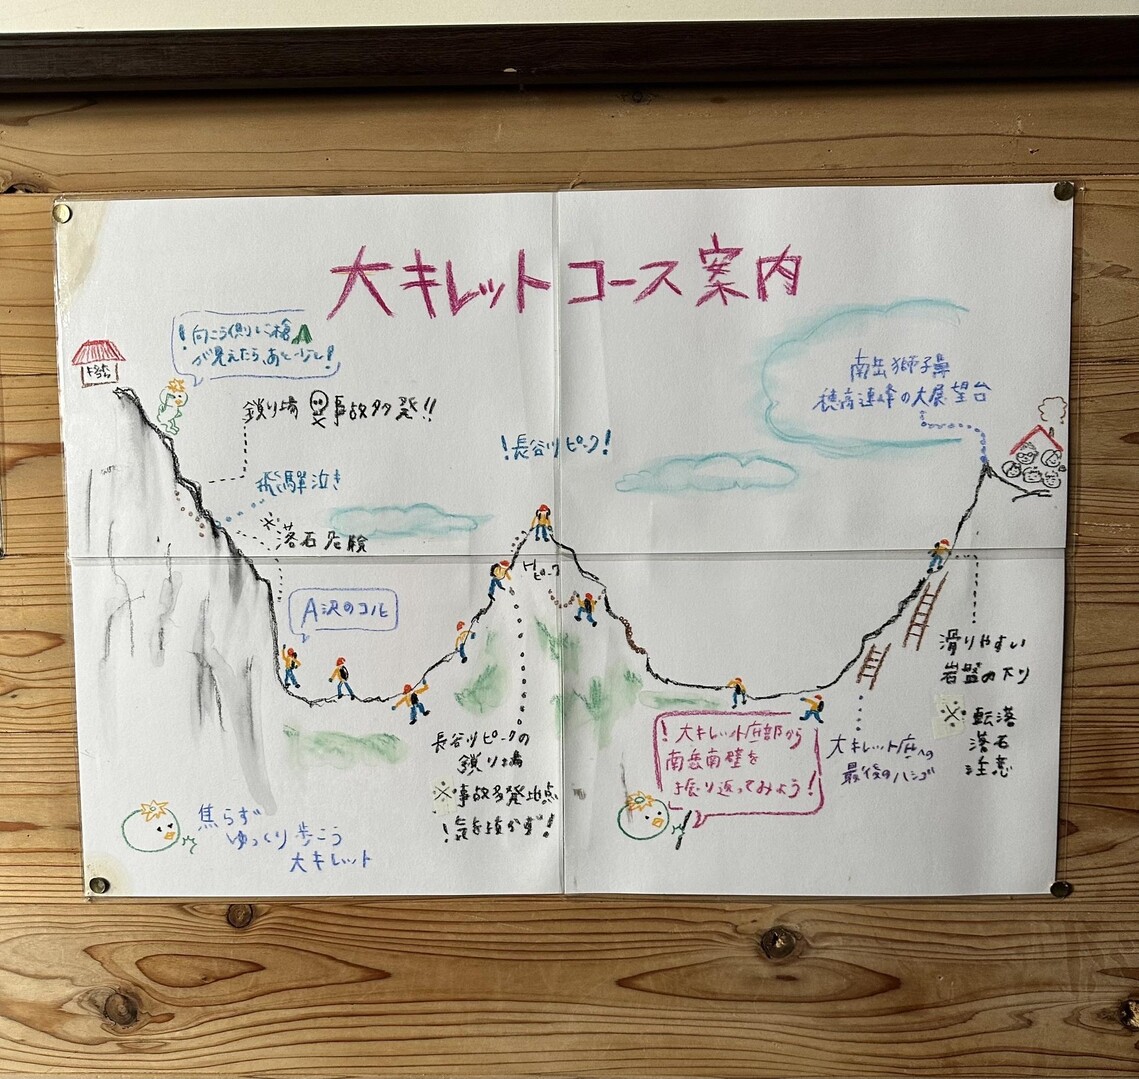 大キレットコース案内
！向こう側に槍
が見えたら、あと少し！
鎖り場 事故多発!!
飛騨泣き
※落石危険
A沢のコル
！長谷川ピーク！
Hピーク
南岳獅子鼻
穂高連峰の大展望台
長谷川ピークの
鎖り場
※事故多発地点
！気を抜かず！
！大キレット底部から
南岳南壁を
振り返ってみよう！
大キレット底への
最後のハシゴ
滑りやすい
岩盤の下り
※転落
落石
注意
焦らず
ゆっくり歩こう
大キレット